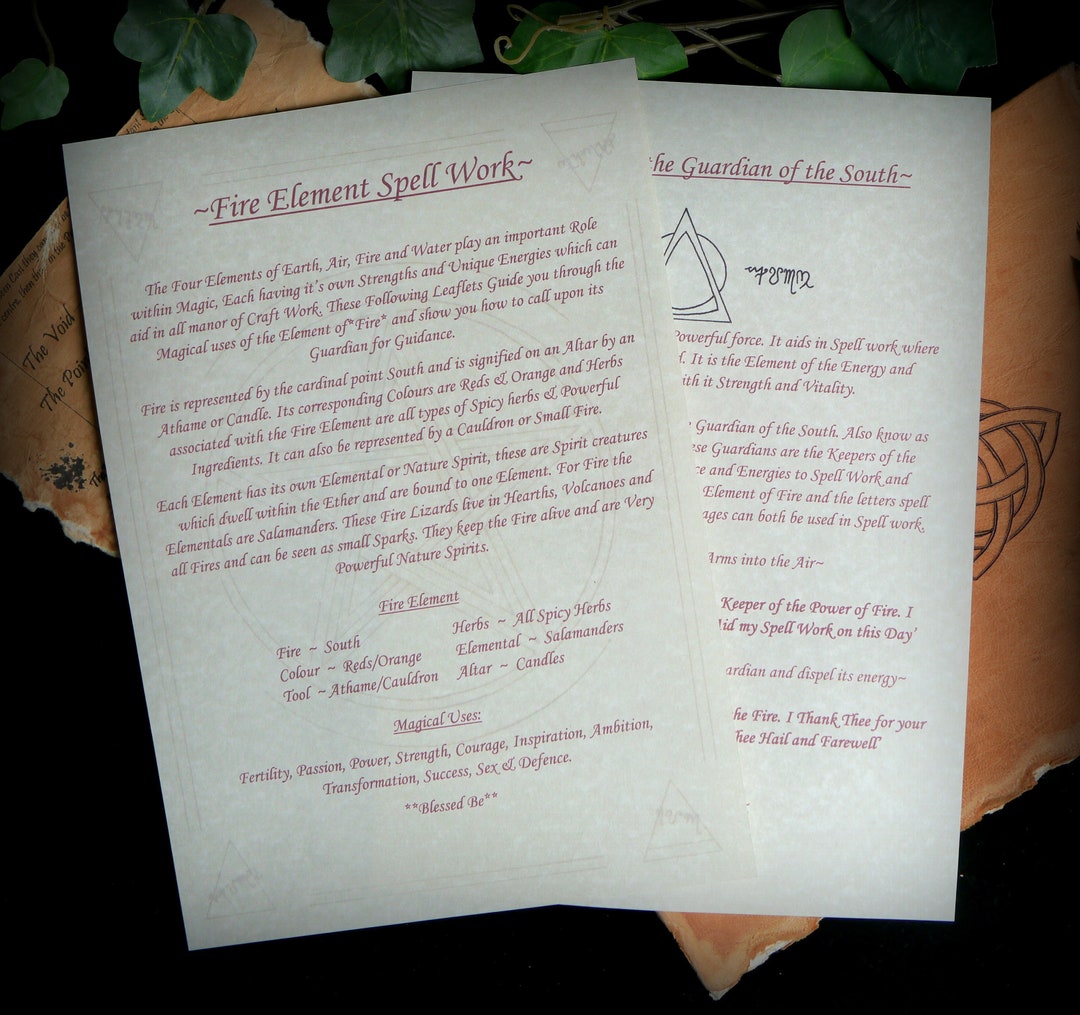 ~Fire Element Spell Work~
The Four Elements of Earth, Air, Fire and Water play an important Role
within Magic, Each having it's own Strengths and Unique Energies which can
aid in all manor of Craft Work. These Following Leaflets Guide you through the
Magical uses of the Element of*Fire* and show you how to call upon its
Guardian for Guidance.
Fire is represented by the cardinal point South and is signified on an Altar by an
Athame or Candle. Its corresponding Colours are Reds & Orange and Herbs
associated with the Fire Element are all types of Spicy herbs & Powerful
Ingredients. It can also be represented by a Cauldron or Small Fire.
Each Element has its own Elemental or Nature Spirit, these are Spirit creatures
which dwell within the Ether and are bound to one Element. For Fire the
Elementals are Salamanders. These Fire Lizards live in Hearths, Volcanoes and
all Fires and can be seen as small Sparks. They keep the Fire alive and are Very
Powerful Nature Spirits.
Fire Element
Fire ~ South
Colour ~ Reds/Orange
Tool ~ Athame/Cauldron
Herbs ~ All Spicy Herbs
Elemental ~ Salamanders
Altar ~ Candles
Magical Uses:
Fertility, Passion, Power, Strength, Courage, Inspiration, Ambition,
Transformation, Success, Sex & Defence.
**Blessed Be**
the Guardian of the South~
Powerful force. It aids in Spell work where
It is the Element of the Energy and
it Strength and Vitality.
Guardian of the South. Also know as
Guardians are the Keepers of the
and Energies to Spell Work and
Element of Fire and the letters spell
can both be used in Spell work.
Arms into the Air~
Keeper of the Power of Fire. I
my Spell Work on this Day'
and dispel its energy~
Fire. I Thank Thee for your
Hail and Farewell'
The Void
The